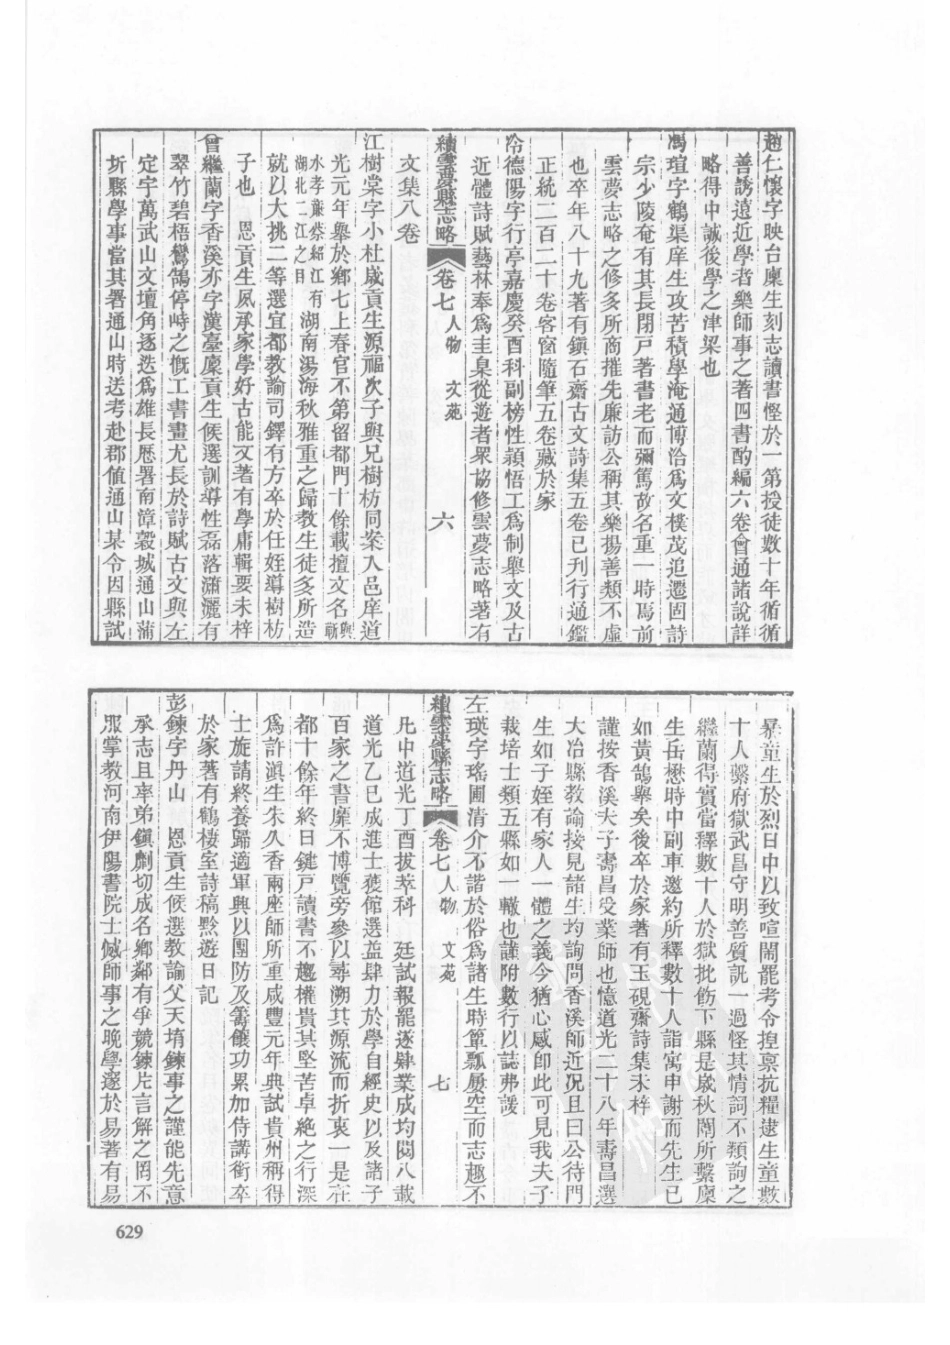 趙仁懷字映台廩生刻志讀書慳於一第授徒數十年循循
善誘遠近學者樂師事之著四書酌編六卷會通諸說詳
略得中誠後學之津梁也
馮瑄字鶴渠庠生攻苦積學淹通博洽爲文樸茂追遷固詩
宗少陵奄有其長閉戸著書老而彌篤故名重一時焉前
雲夢志略之修多所商搉先廉訪公稱其樂揚善類不虛
也卒年八十九著有鎭石齋古文詩集五卷已刊行通鑑
正統二百二十卷客窗隨筆五卷藏於家
冷德陽字行亭嘉慶癸酉科副榜性穎悟工爲制舉文及古
近體詩賦藝林奉爲圭臬從遊者衆協修雲夢志略著有
續雲夢縣志略 卷七 人物 文苑 六
文集八卷
江樹棠字小杜歲貢生源福次子與兄樹枋同案入邑庠道
光元年舉於鄉七上春官不第留都門十餘載擅文名與蘄
水孝廉蔡紹江有湖北二江之目 湖南湯海秋雅重之歸教生徒多所造
就以大挑二等選宜都教諭司鐸有方卒於任姪導樹枋
子也 恩貢生夙承家學好古能文著有學庸輯要未梓
曾繼蘭字香溪亦字漢臺廩貢生候選訓導性磊落瀟灑有
翠竹碧梧鸞鵠停峙之慨工書畫尤長於詩賦古文與左
定宇萬武山文壇角逐迭爲雄長歷署南漳穀城通山蒲
圻縣學事當其署通山時送考赴郡値通山某令因縣試
暴童生於烈日中以致喧鬧罷考令揑禀抗糧逮生童數
十人繫府獄武昌守明善質訊一過怪其情詞不類詢之
繼蘭得實當釋數十人於獄批飭下縣是歲秋闈所繫廩
生岳懋時中副車邀約所釋數十人詣寓申謝而先生已
如黃鵠舉矣後卒於家著有玉硯齋詩集未梓
謹按香溪夫子壽昌受業師也憶道光二十八年壽昌選
大冶縣教諭接見諸生均詢問香溪師近況且曰公待門
生如子姪有家人一體之義今猶心感卽此可見我夫子
栽培士類五縣如一轍也謹附數行以誌弗諼
左瑛字瑤圃淸介不諧於俗爲諸生時簞瓢屢空而志趣不
續雲夢縣志略 卷七 人物 文苑 七
凡中道光丁酉拔萃科 廷試報罷遂肄業成均閱八載
道光乙巳成進士獲館選益肆力於學自經史以及諸子
百家之書靡不博覽旁參以尋溯其源流而折衷一是在
都十餘年終日鍵戸讀書不趨權貴其堅苦卓絶之行深
爲許滇生朱久香兩座師所重咸豐元年典試貴州稱得
士旋請終養歸適軍興以團防及籌饟功累加侍講銜卒
於家著有鶴棲室詩稿黔遊日記
彭鍊字丹山 恩貢生候選教諭父天堉鍊事之謹能先意
承志且率弟鎭劘切成名鄉鄰有爭競鍊片言解之罔不
服掌教河南伊陽書院士憾師事之晚學邃於易著有易
629